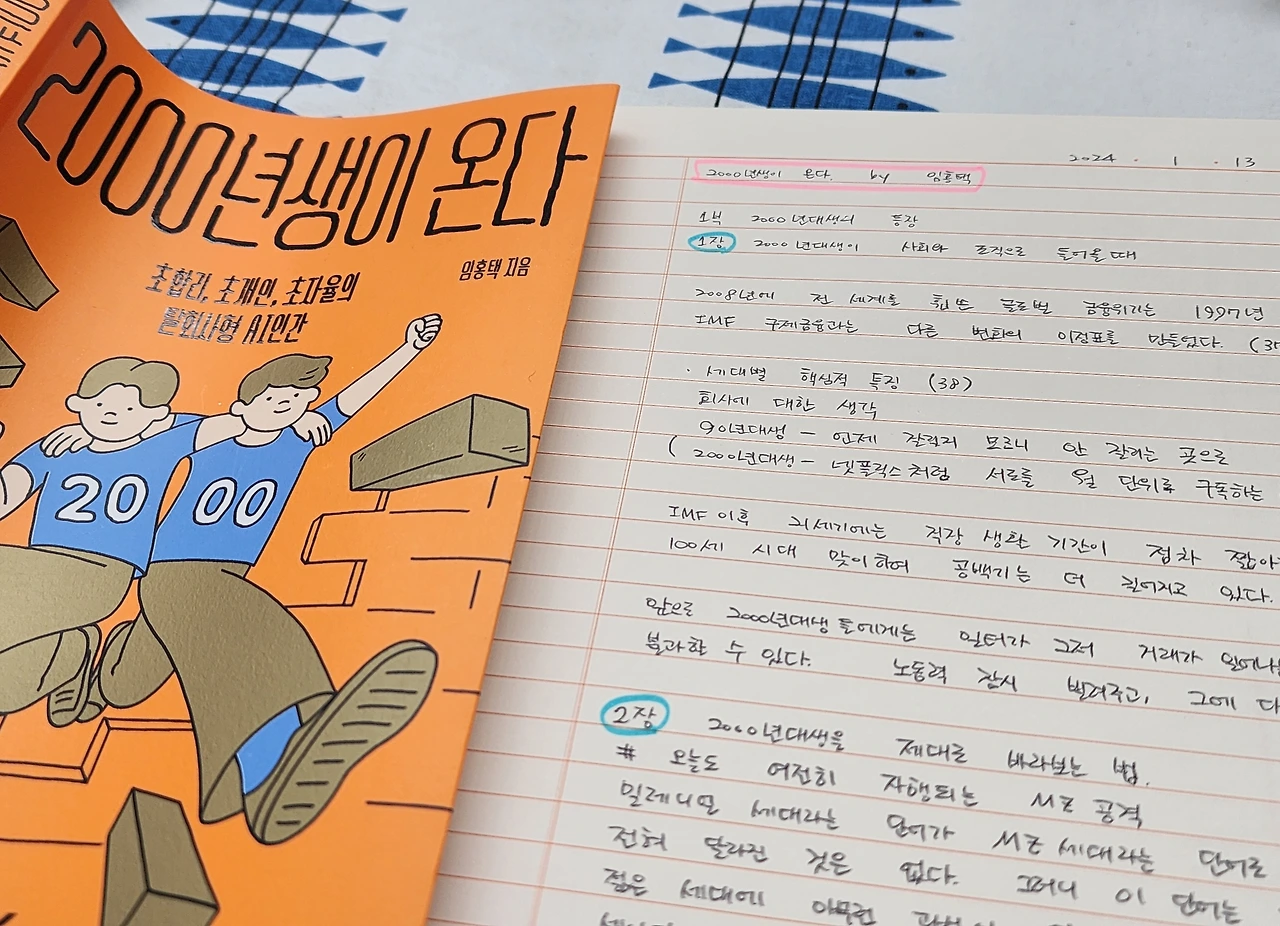 2000년생이 온다
초합리, 초개인, 초자율의
탈회사형 AI인간
임홍택 지음
20 00
2024 . 1 . 13
2000년생이 온다. by 임홍택
1부 2000년대생의 특징
1장 2000년대생이 사회와 조직으로 들어올 때
2008년에 전 세계를 휩쓴 글로벌 금융위기는 1997년
IMF 구제금융과는 다른 변화의 이정표를 만들었다.
· 세대별 핵심적 특징 (38)
회사에 대한 생각
90년대생 – 언제 잘릴지 모르니 안 잘리는 곳으로
( 2000년대생 – 넷플릭스처럼 서로를 월 단위로 구독하는
IMF 이후 21세기에는 직장 생활 기간이 점차 짧아
100세 시대 맞이하여 공백기는 더 길어지고 있다.
앞으로 2000년대생들에게는 일터가 그저 거래가 일어나는
불과할 수 있다. 노동력 잠시 빌려주고, 그에
2장 2000년대생을 제대로 바라보는 법.
# 오늘도 여전히 자행되는 MZ 공격
밀레니얼 세대라는 단어가 MZ세대라는 단어로
전혀 달라진 것은 없다. 그러나 이 단어는
젊은 세대에 아무런